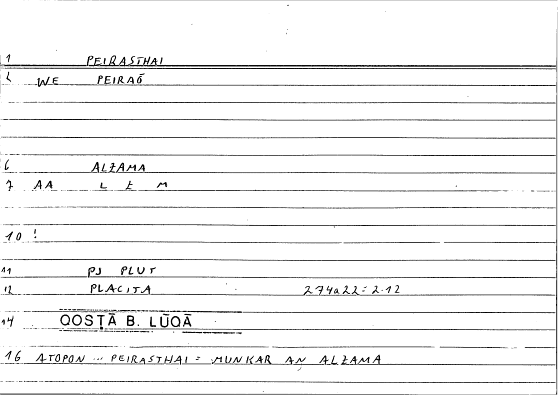 1 PEIRASTHAI
2 WE PEIRAŌ
6 ALZAMA
7 AA L Z M
10 !
11 PJ PLUT
12 PLACITA 274a22 = 2.12
14 QOSṬĀ B. LŪQĀ
16 ATOPON ... PEIRASTHAI = MUNKAR AN ALZAMA